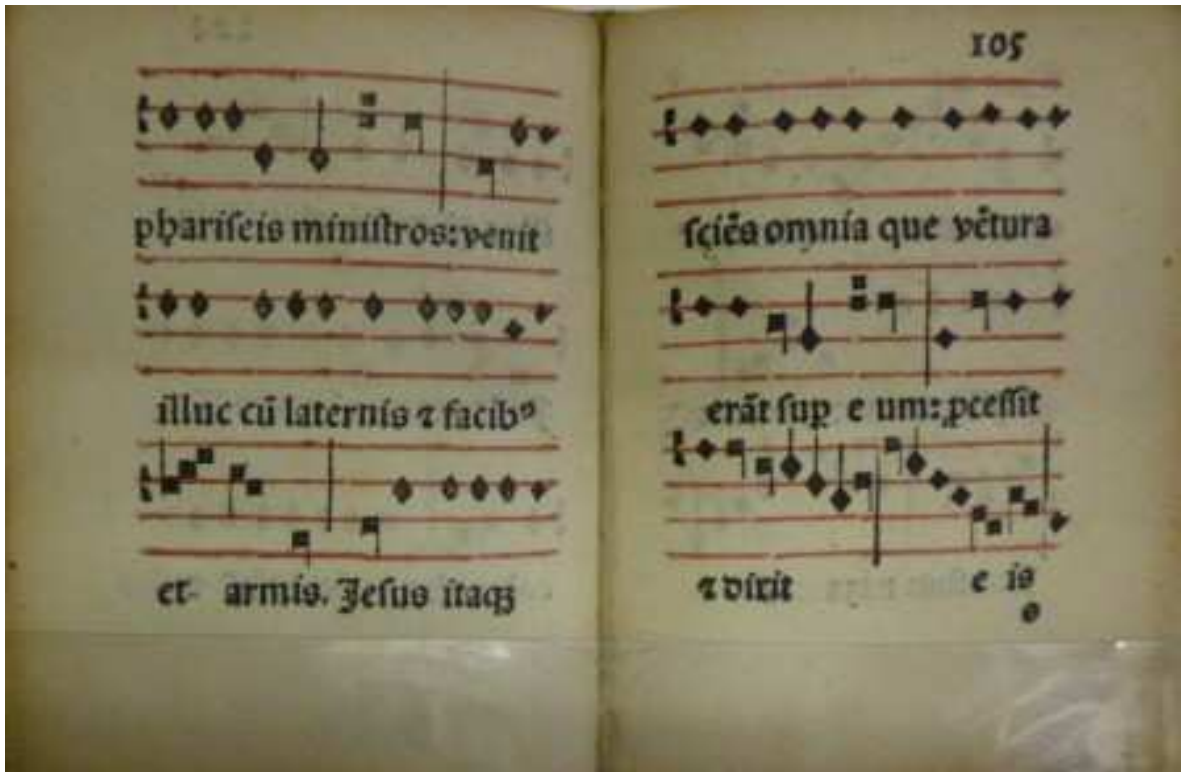 phariseis ministros: venit
illuc cū laternis ⁊ facibꝰ
et armis. Jesus itaqꝫ
105
sciēs omnia que vētura
erāt suꝑ e um: ꝓcessit
⁊ dixit e is
o